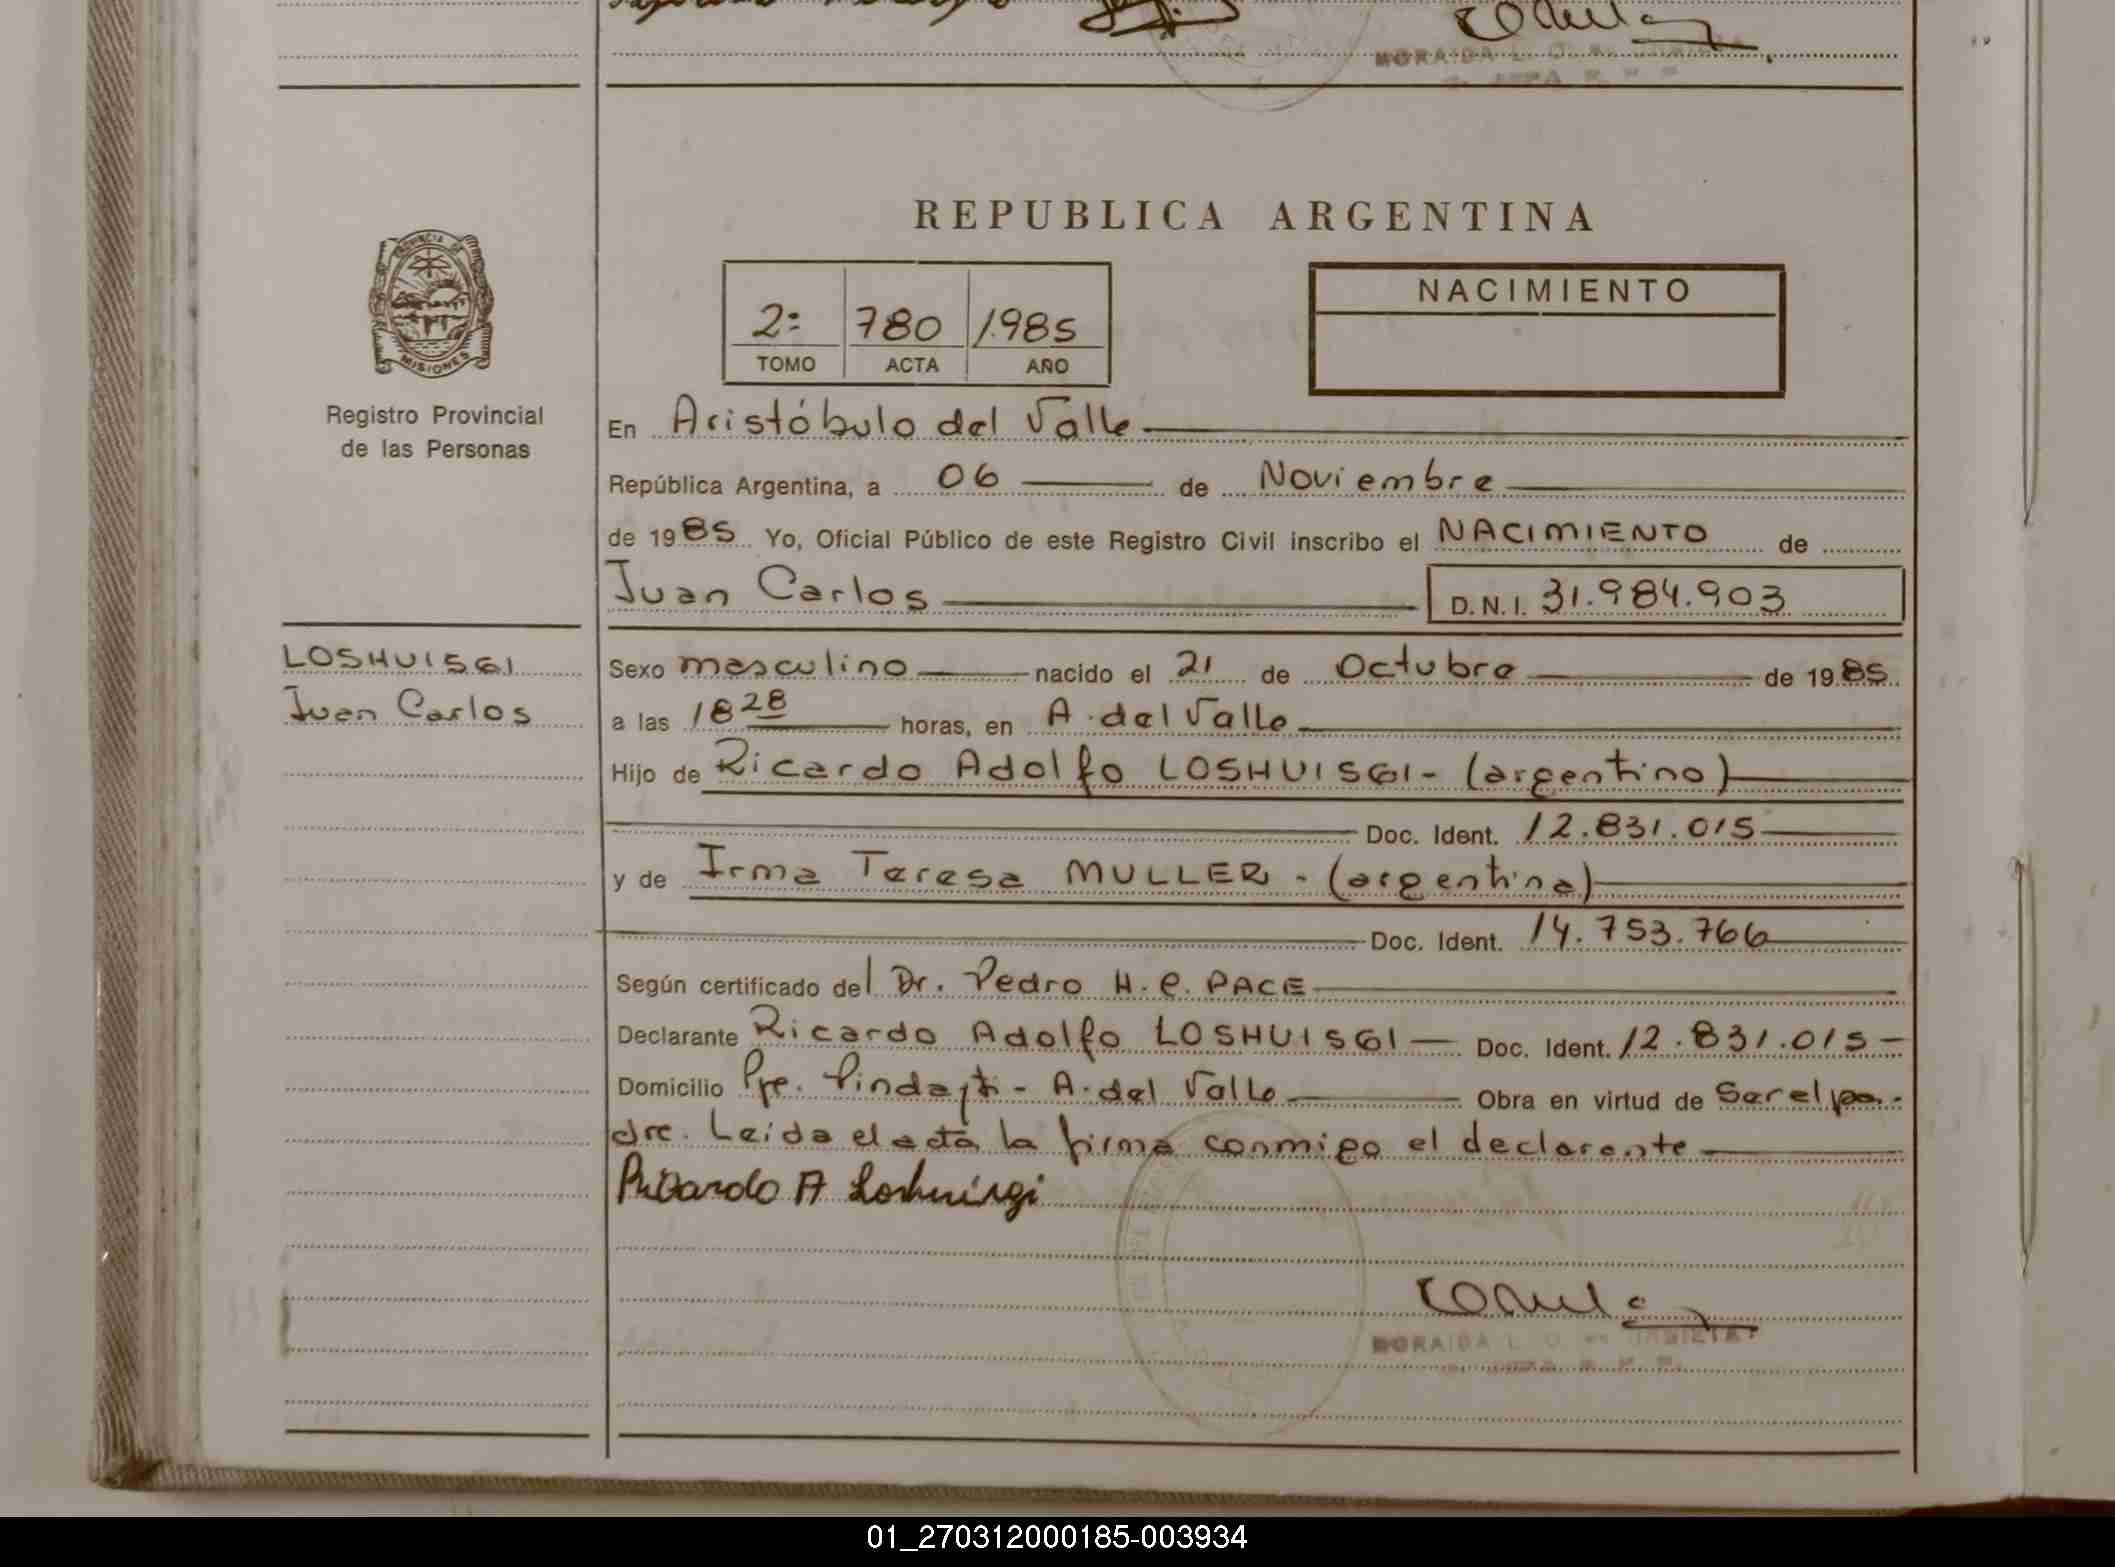 REPUBLICA ARGENTINA
PROVINCIA DE
MISIONES
Registro Provincial
de las Personas
2º 780 1985
TOMO ACTA AÑO
NACIMIENTO
En Aristóbulo del Valle
República Argentina, a 06 de Noviembre
de 1985 Yo, Oficial Público de este Registro Civil inscribo el NACIMIENTO de
Juan Carlos D.N.I. 31.984.903
LOSHUISGI
Juan Carlos
Sexo masculino nacido el 21 de Octubre de 1985
a las 18 28 horas, en A. del Valle
Hijo de Ricardo Adolfo LOSHUISGI - (argentino)
Doc. Ident. 12.831.015
y de Irma Teresa MULLER - (argentina)
Doc. Ident. 14.753.766
Según certificado del Dr. Pedro H. C. PACE
Declarante Ricardo Adolfo LOSHUISGI - Doc. Ident. 12.831.015 -
Domicilio - A. del Valle Obra en virtud de Ser el pa-
dre. Leida el acta la firma conmigo el declarante
Ricardo A Loshuisgi
MORAIDA L. O.
01_270312000185-003934